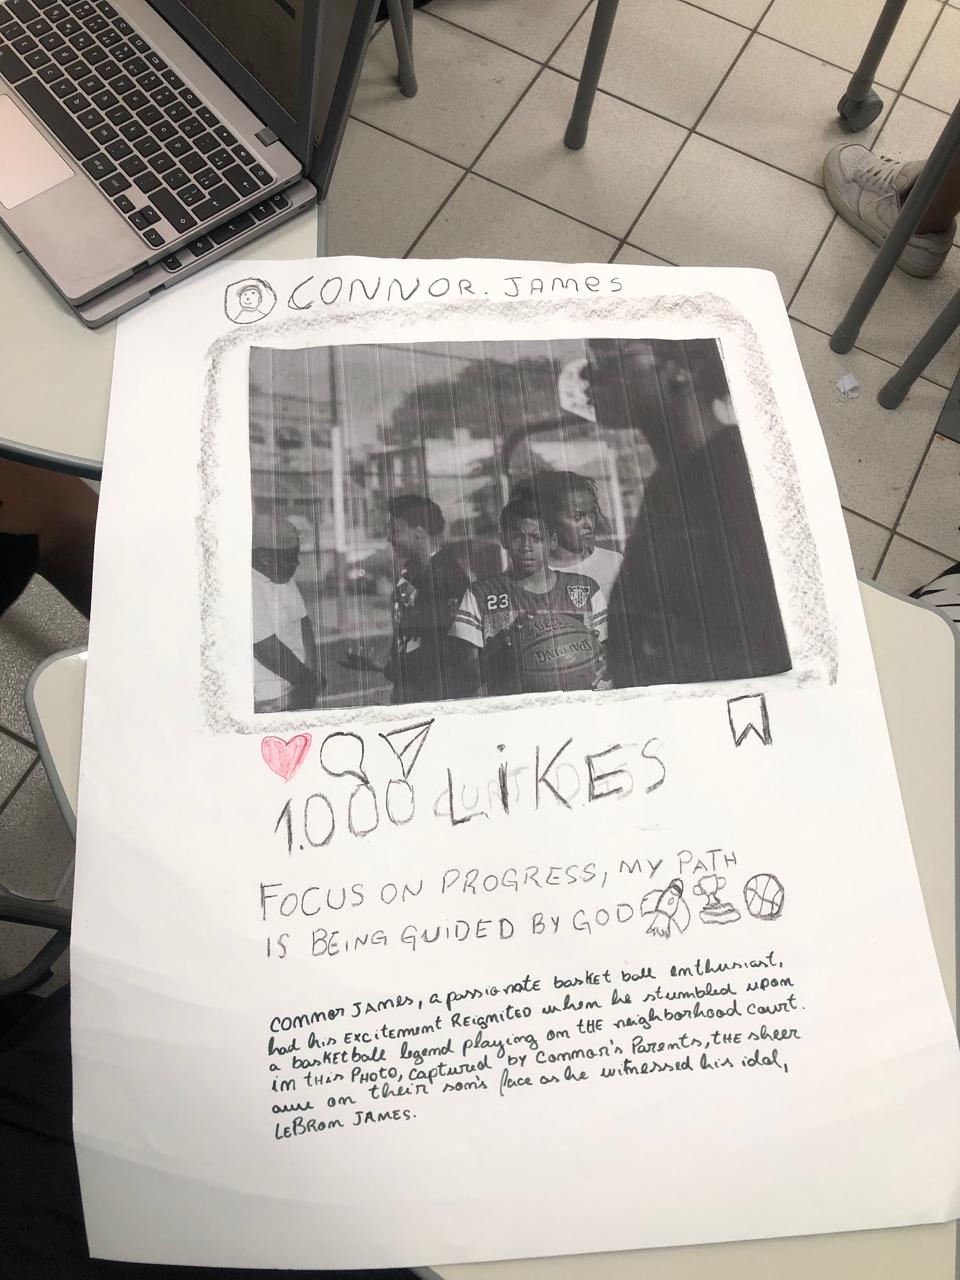 CONNOR. JAMES
23
SPALDING
1.000 LIKES
FOCUS ON PROGRESS, MY PATH
IS BEING GUIDED BY GOD
CONNOR JAMES, a passionate basket ball enthusiast,
had his EXCITEMENT REIGNITED when he stumbled upon
a basketball legend playing on THE neighborhood court.
in THIS PHOTO, captured by Connor's Parents, THE sheer
awe on their son's face as he witnessed his idol,
LEBRON JAMES.